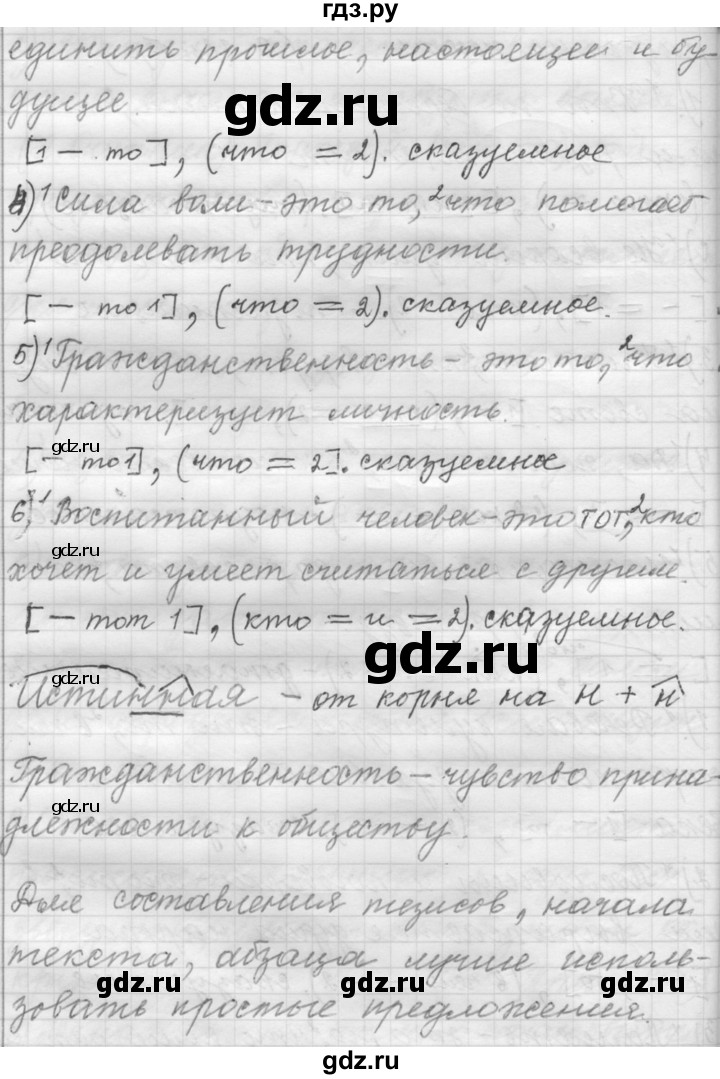 гдз.ру
единить прошлое, настоящее и бу-
дущее.
gdz.ru
[1 – то], (что = 2). сказуемное
4) ¹Сила воли – это то, ²что помогает
преодолевать трудности.
gdz.ru gdz.ru
[– то 1], (что = 2). сказуемное.
5) ¹Гражданственность – это то, ²что
характеризует личность.
gdz.ru gdz.ru
[– то 1], (что = 2]. сказуемное
6) ¹Воспитанный человек – это тот, ²кто
хочет и умеет считаться с другими.
[– тот 1], (кто = и = 2). сказуемное.
gdz.ru gdz.ru
Истинная – от корня на н + н
Гражданственность – чувство прина-
gdz.ru gdz.ru
длежности к обществу.
Для составления тезисов, начала
текста, абзаца лучше исполь-
gdz.ru gdz.ru gdz.ru
зовать простые предложения.
gdz.ru